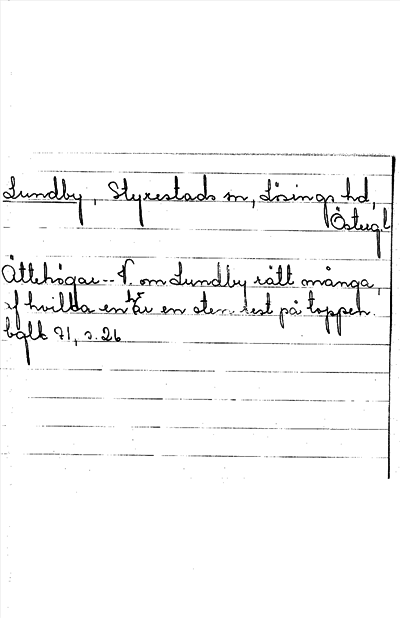 Lundby, Styrestads sn, Lösings hd,
Östergl
Ättehögar -- N. om Lundby rätt många,
af hvilka en har en sten rest på toppen.
bgll 71, s. 26